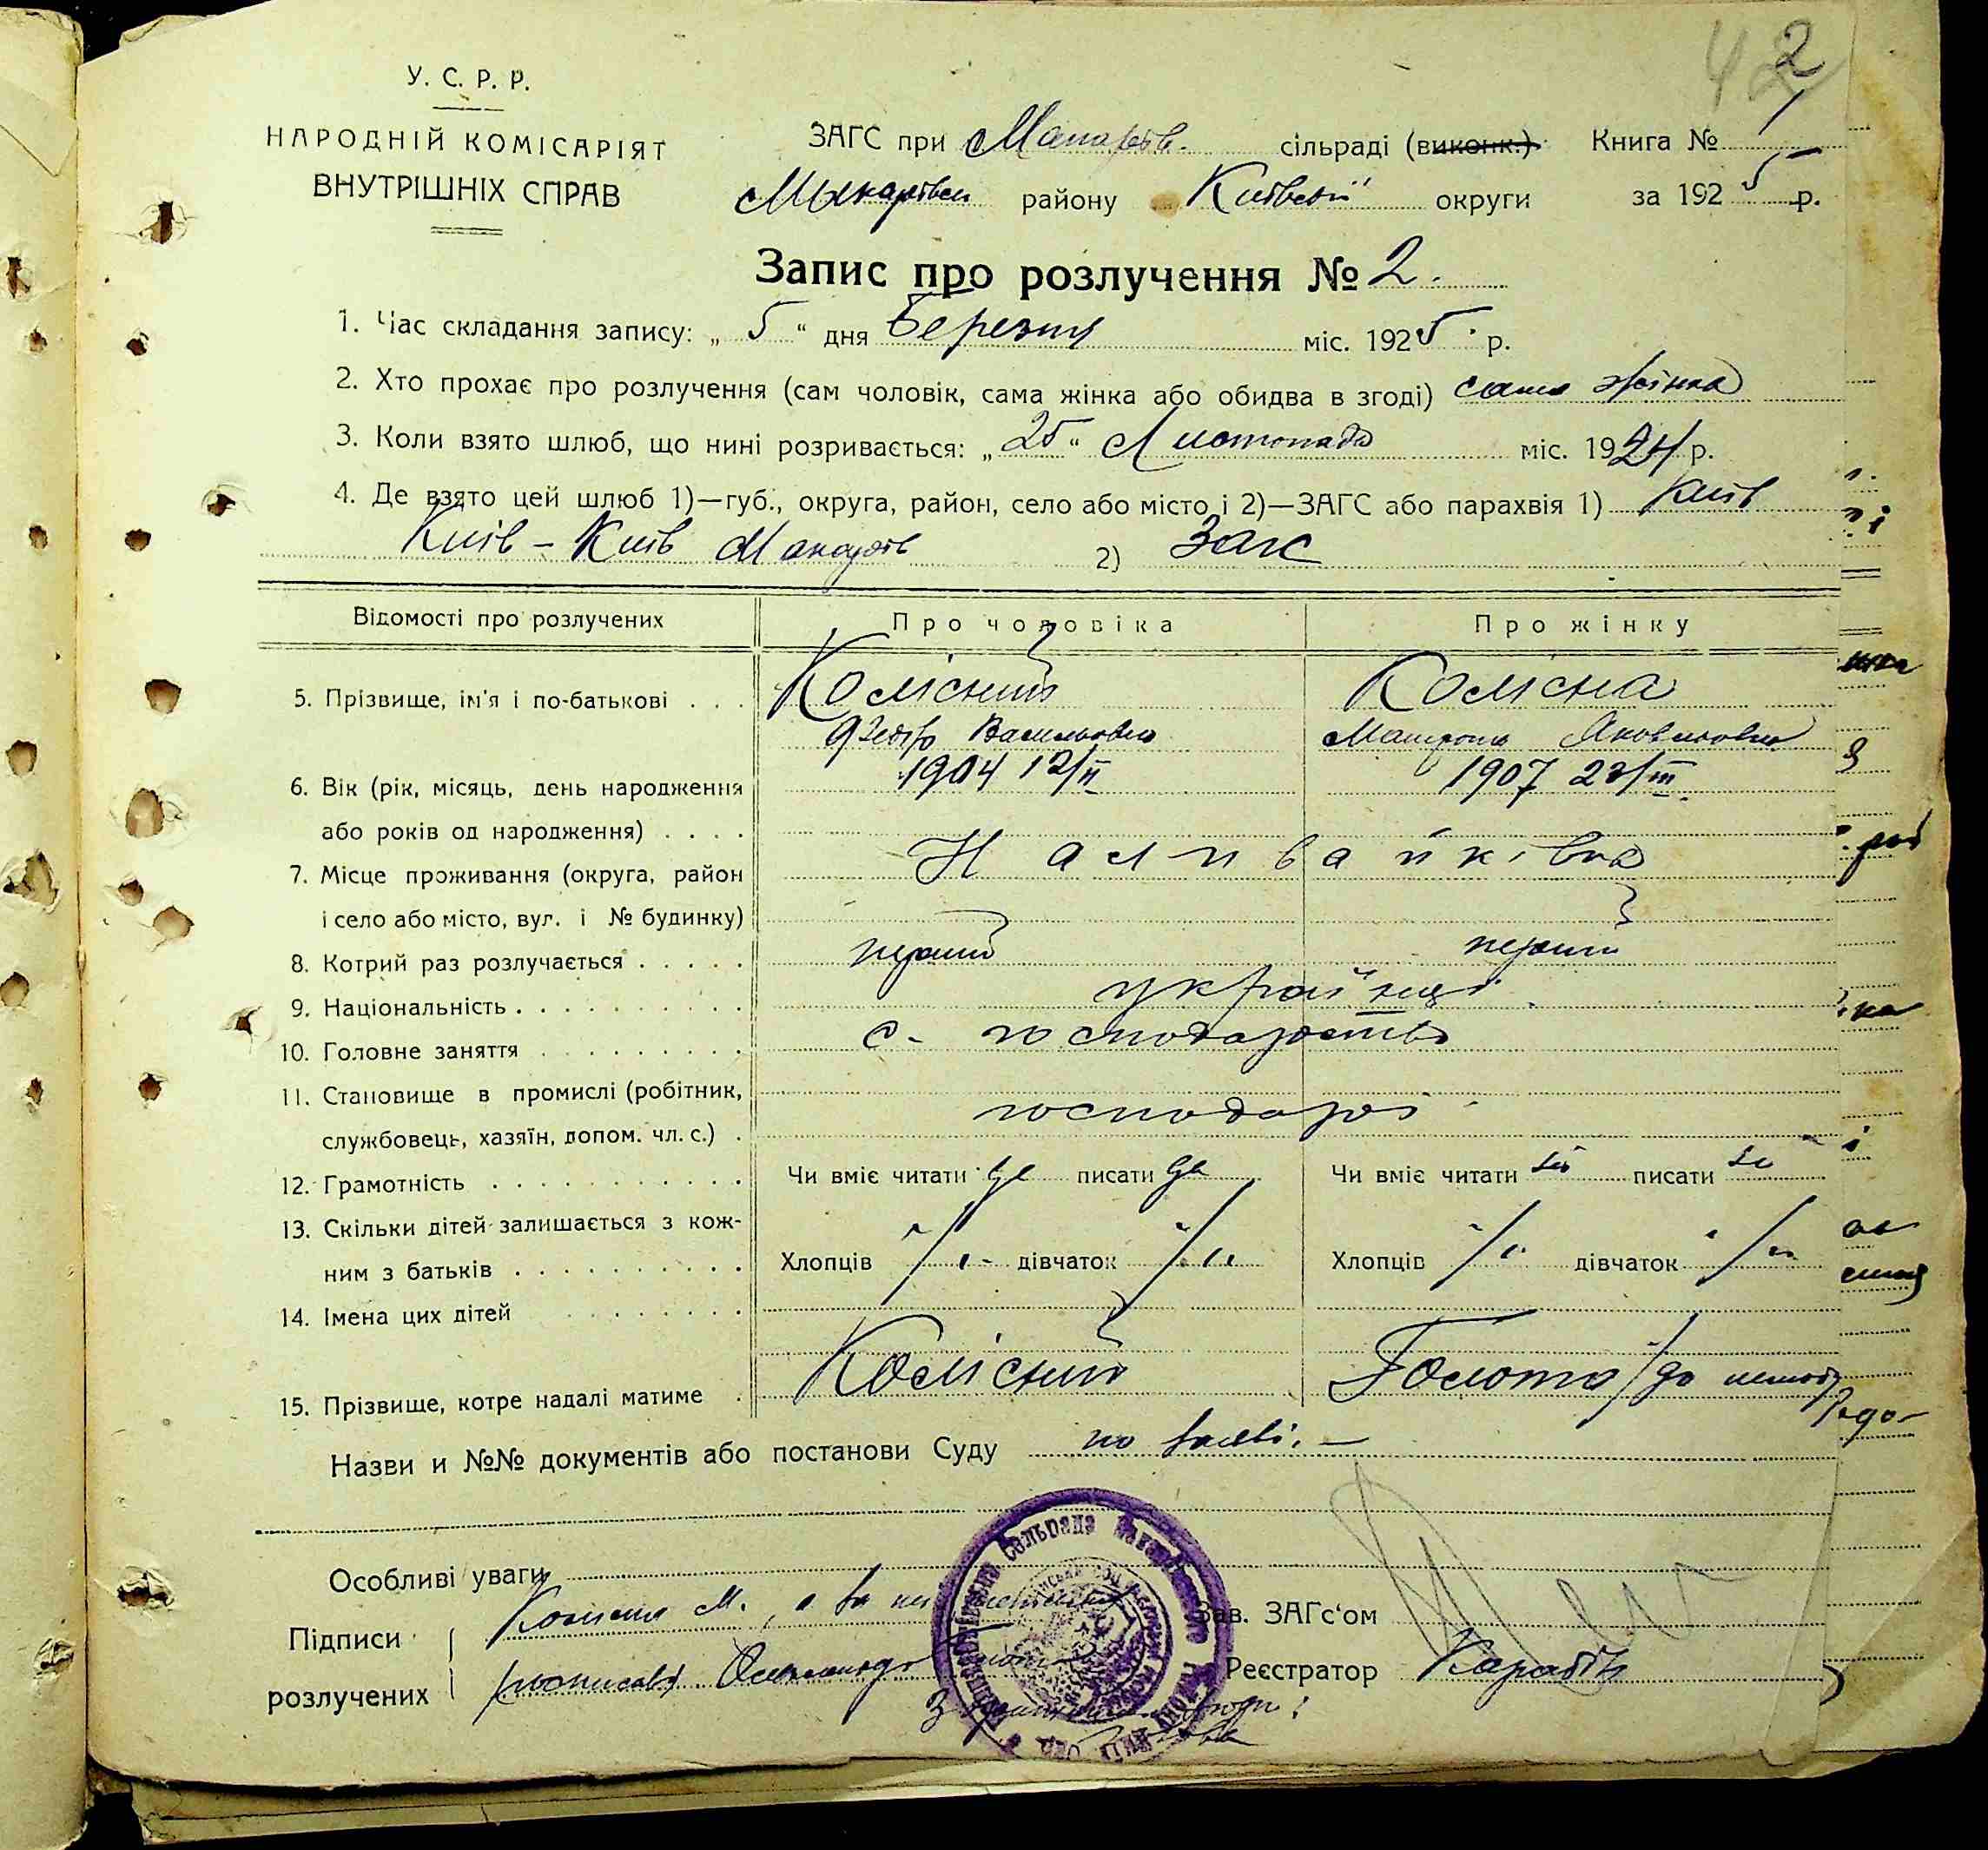 42
У. С. Р. Р.
НАРОДНІЙ КОМІСАРІЯТ
ВНУТРІШНІХ СПРАВ
ЗАГС при Макарів. сільраді (виконк.) Книга № 1
Макарівськ району Київської округи за 1925 р.
Запис про розлучення № 2.
1. Час складання запису: „5“ дня Березня міс. 1925 р.
2. Хто прохає про розлучення (сам чоловік, сама жінка або обидва в згоді) сама жінка
3. Коли взято шлюб, що нині розривається: „25“ Листопада міс. 1924 р.
4. Де взято цей шлюб 1)—губ., округа, район, село або місто і 2)—ЗАГС або парахвія 1) Київ
Київ – Київ Макарів 2) Загс
Відомості про розлучених Про чоловіка Про жінку
5. Прізвище, ім'я і по-батькові . . . Колісний Колісна
Федір Васильович Мотрона Яковлевна
6. Вік (рік, місяць, день народження 1904 12/II 1907 23/III.
або років од народження) . . . .
7. Місце проживання (округа, район Наливайківка
і село або місто, вул. і № будинку)
8. Котрий раз розлучається . . . . . перший перший
9. Національність . . . . . . . . . . українці
10. Головне заняття . . . . . . . . . с. господарство
11. Становище в промислі (робітник,
службовець, хазяїн, допом. чл. с.) . господарі
12. Грамотність . . . . . . . . . . . Чи вміє читати да писати да Чи вміє читати писати
13. Скільки дітей залишається з кож-
ним з батьків . . . . . . . . . . Хлопців дівчаток Хлопців дівчаток
14. Імена цих дітей . . . . . . . .
15. Прізвище, котре надалі матиме . Колісний Болото /до
Назви и №№ документів або постанови Суду по заяві. –
Особливі уваги
Підписи розлучених
Колісна М., а за
росписавсь
Зав. ЗАГс'ом
Реєстратор